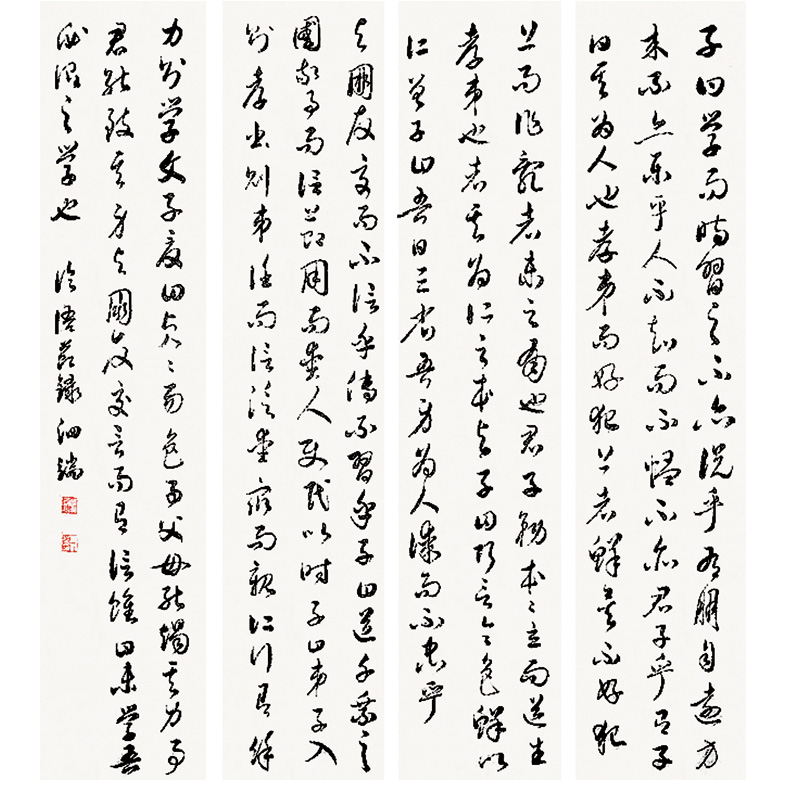 子曰学而時習之不亦说乎有朋自遠方
来不亦樂乎人不知而不愠不亦君子乎有子
曰其为人也孝弟而好犯上者鮮矣不好犯
上而作亂者未之有也君子務本〻立而道生
孝弟也者其为仁之本与子曰巧言令色鮮以
仁曾子曰吾日三省吾身为人谋而不忠乎
与朋友交而不信乎传不習乎子曰道千乘之
國敬事而信节用而爱人使民以时子曰弟子入
则孝出则弟谨而信泛爱众而親仁行有餘
力则学文子夏曰贤〻易色事父母能竭其力事
君能致其身与朋友交言而有信雖曰未学吾
必谓之学也 论语节錄